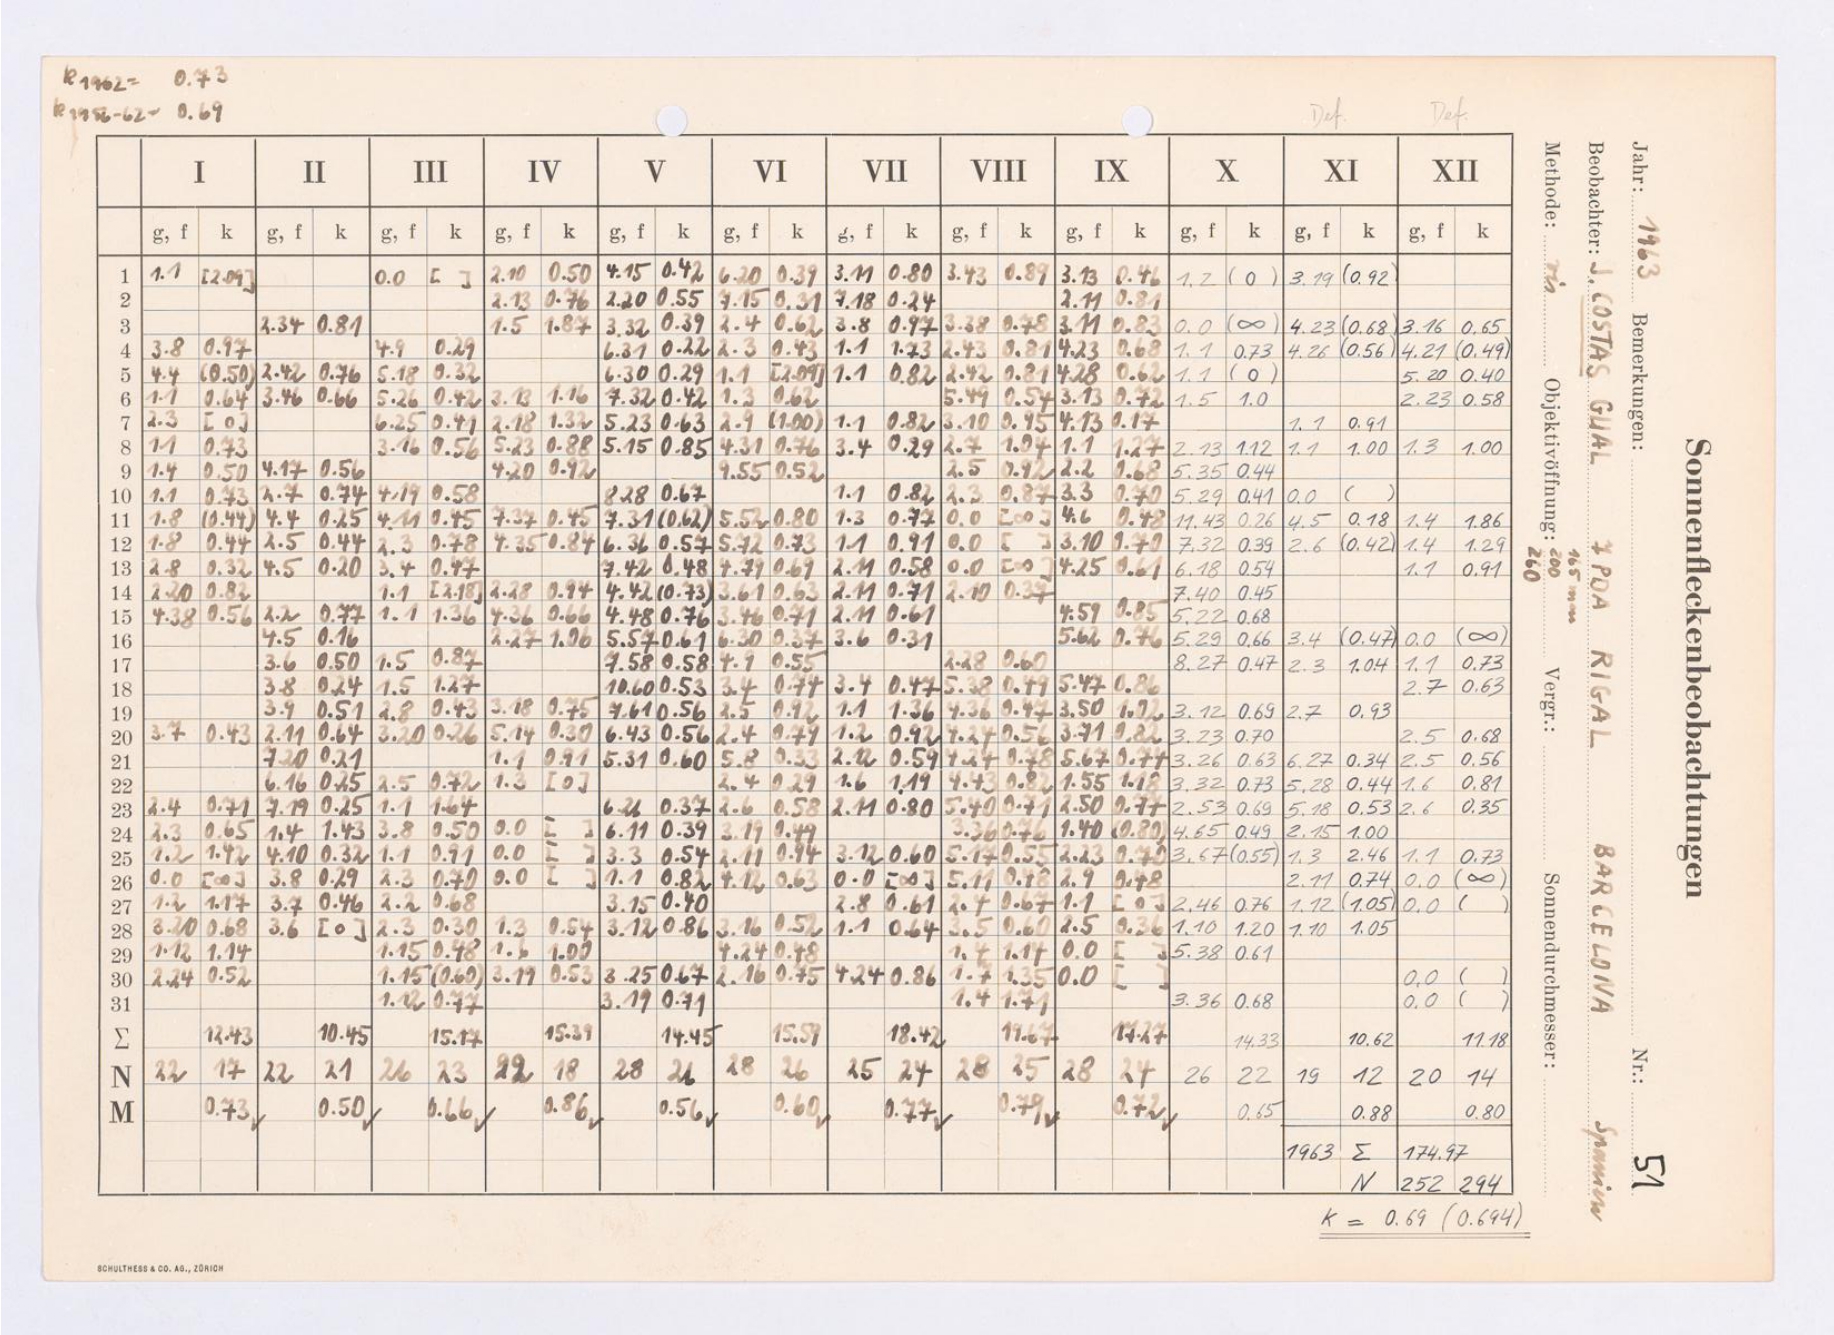 k1962= 0.73
k1956-62= 0.69
Def. Def.
I II III IV V VI VII VIII IX X XI XII
g, f k g, f k g, f k g, f k g, f k g, f k g, f k g, f k g, f k g, f k g, f k g, f k
1 1.1 [2.09] 0.0 [ ] 2.10 0.50 4.15 0.42 6.20 0.39 3.11 0.80 3.43 0.89 3.13 0.46 1.2 (0) 3.19 (0.92)
2 2.13 0.76 2.20 0.55 7.15 0.31 7.18 0.24 2.11 0.81
3 2.34 0.81 1.5 1.87 3.32 0.39 2.4 0.62 3.8 0.97 3.38 0.78 3.11 0.83 0.0 (∞) 4.23 (0.68) 3.16 0.65
4 3.8 0.97 4.9 0.29 6.31 0.22 2.3 0.43 1.1 1.73 2.43 0.81 4.23 0.68 1.1 0.73 4.26 (0.56) 4.21 (0.49)
5 4.4 (0.50) 2.42 0.76 5.18 0.32 6.30 0.29 1.1 [2.09] 1.1 0.82 2.42 0.81 4.28 0.62 1.1 (0) 5.20 0.40
6 1.1 0.64 3.46 0.66 5.26 0.42 3.13 1.16 7.32 0.42 1.3 0.62 5.49 0.54 3.13 0.72 1.5 1.0 2.23 0.58
7 2.3 [0] 6.25 0.41 2.18 1.32 5.23 0.63 2.9 (1.00) 1.1 0.82 3.10 0.95 4.13 0.17 1.1 0.91
8 1.1 0.73 3.16 0.56 5.23 0.88 5.15 0.85 4.31 0.76 3.4 0.29 2.7 1.04 1.1 1.27 2.13 1.12 1.1 1.00 1.3 1.00
9 1.4 0.50 4.17 0.56 4.20 0.92 9.55 0.52 2.5 0.92 2.2 0.68 5.35 0.44
10 1.1 0.73 2.7 0.74 4.19 0.58 8.28 0.67 1.1 0.82 2.3 0.87 3.3 0.70 5.29 0.41 0.0 ( )
11 1.8 (0.44) 4.4 0.25 4.11 0.45 7.37 0.45 7.31 (0.62) 5.52 0.80 1.3 0.77 0.0 [∞] 4.6 0.48 11.43 0.26 4.5 0.18 1.4 1.86
12 1.8 0.44 2.5 0.44 2.3 0.78 4.35 0.84 6.36 0.57 5.72 0.73 1.1 0.91 0.0 [ ] 3.10 0.70 7.32 0.39 2.6 (0.42) 1.4 1.29
13 2.8 0.32 4.5 0.20 3.4 0.47 7.42 0.48 4.79 0.69 2.11 0.58 0.0 [∞] 4.25 0.61 6.18 0.54 1.1 0.91
14 2.20 0.82 1.1 [2.18] 2.28 0.94 4.42 (0.73) 3.61 0.63 2.11 0.71 2.10 0.37 7.40 0.45
15 4.38 0.56 2.2 0.77 1.1 1.36 4.36 0.66 4.48 0.76 3.46 0.71 2.11 0.61 4.59 0.85 5.22 0.68
16 4.5 0.16 2.27 1.06 5.57 0.61 6.30 0.37 3.6 0.31 5.62 0.76 5.29 0.66 3.4 (0.47) 0.0 (∞)
17 3.6 0.50 1.5 0.87 7.58 0.58 4.9 0.55 2.28 0.60 8.27 0.47 2.3 1.04 1.1 0.73
18 3.8 0.24 1.5 1.27 10.60 0.53 3.4 0.74 3.4 0.47 5.38 0.49 5.47 0.86 2.7 0.63
19 3.9 0.51 2.8 0.43 3.18 0.75 7.61 0.56 2.5 0.92 1.1 1.36 4.36 0.47 3.50 1.02 3.12 0.69 2.7 0.93
20 3.7 0.43 2.11 0.64 3.20 0.26 5.14 0.30 6.43 0.56 2.4 0.79 1.2 0.92 4.24 0.56 3.71 0.82 3.23 0.70 2.5 0.68
21 7.20 0.21 1.1 0.91 5.31 0.60 5.8 0.33 2.12 0.59 4.24 0.78 5.67 0.74 3.26 0.63 6.27 0.34 2.5 0.56
22 6.16 0.25 2.5 0.72 1.3 [0] 2.4 0.29 1.6 1.19 4.43 0.82 1.55 1.18 3.32 0.73 5.28 0.44 1.6 0.81
23 2.4 0.71 7.19 0.25 1.1 1.64 6.21 0.37 2.6 0.58 2.11 0.80 5.40 0.71 2.50 0.77 2.53 0.69 5.18 0.53 2.6 0.35
24 2.3 0.65 1.4 1.43 3.8 0.50 0.0 [ ] 6.11 0.39 3.19 0.49 3.36 0.76 1.40 (0.80) 4.65 0.49 2.15 1.00
25 1.2 1.42 4.10 0.32 1.1 0.91 0.0 [ ] 3.3 0.54 2.11 0.94 3.12 0.60 5.17 0.55 2.23 0.70 3.67 (0.55) 1.3 2.46 1.1 0.73
26 0.0 [∞] 3.8 0.29 2.3 0.70 0.0 [ ] 1.1 0.82 4.12 0.63 0.0 [∞] 5.11 0.48 2.9 0.48 2.11 0.74 0.0 (∞)
27 1.2 1.17 3.7 0.46 2.2 0.68 3.15 0.40 2.8 0.61 2.4 0.67 1.1 [0] 2.46 0.76 1.12 (1.05) 0.0 ( )
28 3.20 0.68 3.6 [0] 2.3 0.30 1.3 0.54 3.12 0.86 3.16 0.52 1.1 0.64 3.5 0.60 2.5 0.36 1.10 1.20 1.10 1.05
29 1.12 1.14 1.15 0.48 1.6 1.00 4.24 0.48 1.4 1.14 0.0 [ ] 5.38 0.61
30 2.24 0.52 1.15 (0.60) 3.19 0.53 3.25 0.67 2.16 0.75 4.24 0.86 1.7 1.35 0.0 [ ] 0.0 ( )
31 1.12 0.77 3.19 0.71 1.4 1.71 3.36 0.68 0.0 ( )
Σ 12.43 10.45 15.17 15.39 14.45 15.59 18.42 19.67 17.27 14.33 10.62 11.18
N 22 17 22 21 26 23 22 18 28 26 28 26 25 24 28 25 28 24 26 22 19 12 20 14
M 0.73 0.50 0.66 0.86 0.56 0.60 0.77 0.79 0.72 0.65 0.88 0.80
1963 Σ 174.97
N 252 294
K = 0.69 (0.694)
SCHULTHESS & CO. AG., ZÜRICH
Sonnenfleckenbeobachtungen
Jahr: 1963 Bemerkungen: Nr.: 51
Beobachter: J. COSTAS GUAL 7 PDA RIGAL BARCELONA Spanien
Methode: vis Objektivöffnung: 165 mm 200 260 Vergr.: Sonnendurchmesser: